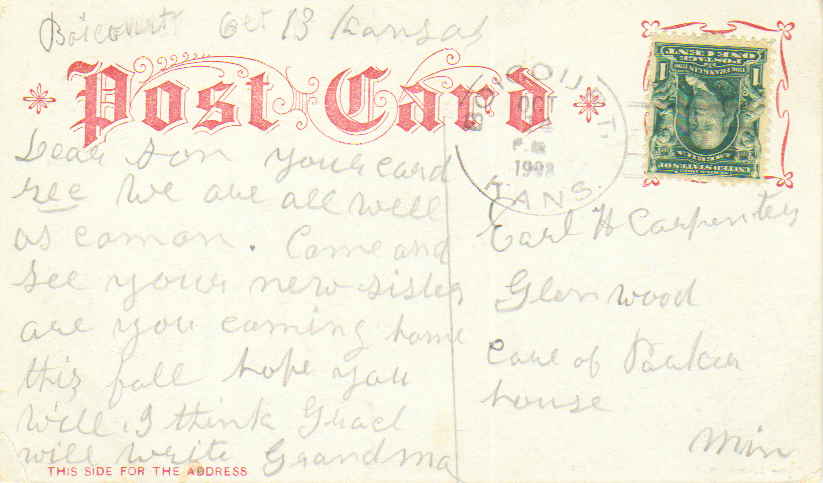 Boicourt Oct 13 Kansas
Post Card
Dear Son your card
rec We are all well
as comon. Come and
see your new sister
are you coming home
this fall hope you
will. I think Gracl
will write Grandma
THIS SIDE FOR THE ADDRESS
OCT
P.M.
1908
KANS.
POSTAGE
ONE CENT
1 1
UNITED STATES OF
AMERICA
Earl H Carpenter
Glenwood
Care of Parker
house
Min